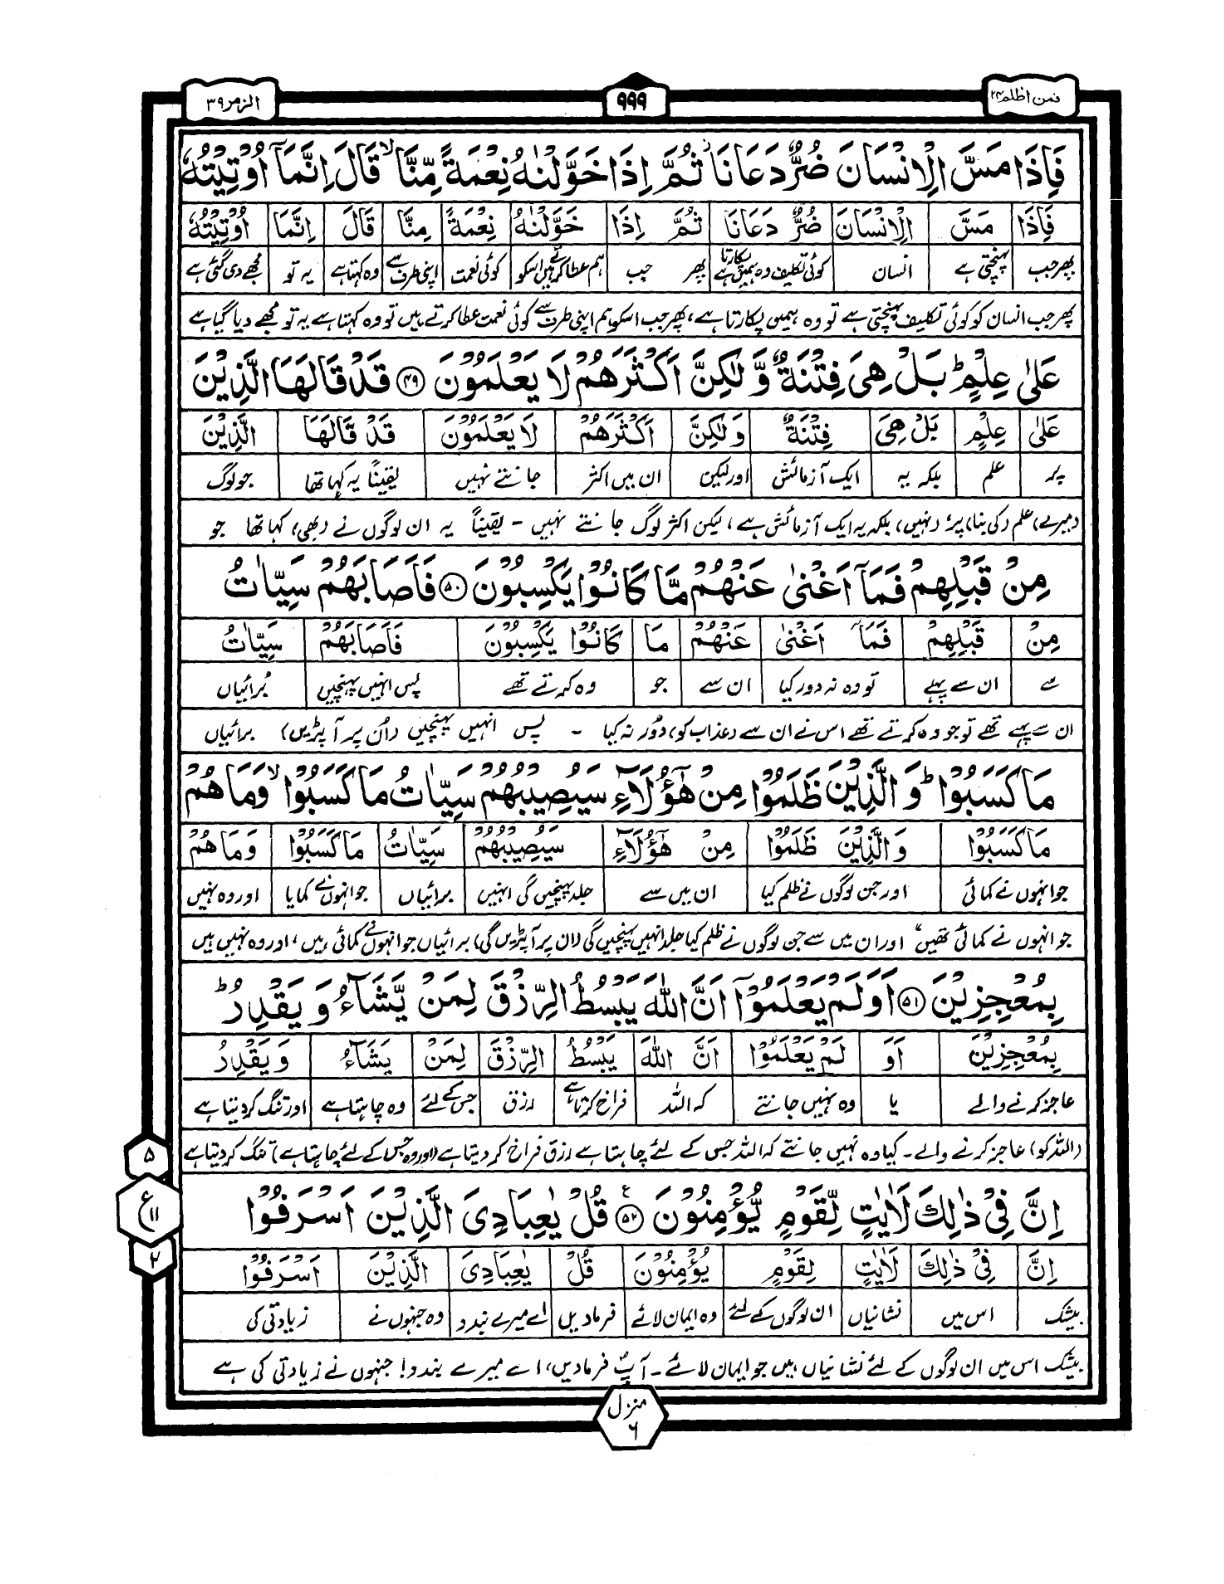 فمن اظلم ۲۴
۹۹۹
الزمر ۳۹
فَاِذَا مَسَّ الْاِنْسَانَ ضُرٌّ دَعَانَا ثُمَّ اِذَا خَوَّلْنٰهُ نِعْمَةً مِّنَّا ۙ قَالَ اِنَّمَاۤ اُوْتِیْتُهٗ
فَاِذَا مَسَّ الْاِنْسَانَ ضُرٌّ دَعَانَا ثُمَّ اِذَا خَوَّلْنٰهُ نِعْمَةً مِنَّا قَالَ اِنَّمَا اُوْتِیْتُهٗ
پھر جب پہنچتی ہے انسان کوئی تکلیف وہ ہمیں پکارتا ہے پھر جب ہم عطا کرتے ہیں اسکو کوئی نعمت اپنی طرف سے وہ کہتا ہے یہ تو مجھے دی گئی ہے
پھر جب انسان کو کوئی تکلیف پہنچتی ہے تو وہ ہمیں پکارتا ہے، پھر جب اسکو ہم اپنی طرف سے کوئی نعمت عطا کرتے ہیں تو وہ کہتا ہے یہ تو مجھے دیا گیا ہے
عَلٰی عِلْمٍ ؕ بَلْ هِیَ فِتْنَةٌ وَّلٰكِنَّ اَكْثَرَهُمْ لَا یَعْلَمُوْنَ ۴۹ قَدْ قَالَهَا الَّذِیْنَ
عَلٰی عِلْمٍ بَلْ هِیَ فِتْنَةٌ وَلٰكِنَّ اَكْثَرَهُمْ لَا یَعْلَمُوْنَ قَدْ قَالَهَا الَّذِیْنَ
پر علم بلکہ یہ ایک آزمائش اور لیکن ان میں اکثر جانتے نہیں یقیناً یہ کہا تھا جو لوگ
(میرے) علم (کی بنا) پر (نہیں) بلکہ یہ ایک آزمائش ہے، لیکن اکثر لوگ جانتے نہیں - یقیناً یہ ان لوگوں نے (بھی) کہا تھا جو
مِنْ قَبْلِهِمْ فَمَاۤ اَغْنٰی عَنْهُمْ مَّا كَانُوْا یَكْسِبُوْنَ ۵۰ فَاَصَابَهُمْ سَیِّاٰتُ
مِنْ قَبْلِهِمْ فَمَاۤ اَغْنٰی عَنْهُمْ مَا كَانُوْا یَكْسِبُوْنَ فَاَصَابَهُمْ سَیِّاٰتُ
سے ان سے پہلے تو وہ نہ دور کیا ان سے جو وہ کرتے تھے پس انہیں پہنچیں برائیاں
ان سے پہلے تھے تو جو وہ کرتے تھے اس نے ان سے (عذاب کو) دور نہ کیا - پس انہیں پہنچیں (ان پر آ پڑیں) برائیاں
مَا كَسَبُوْا ؕ وَالَّذِیْنَ ظَلَمُوْا مِنْ هٰۤؤُلَآءِ سَیُصِیْبُهُمْ سَیِّاٰتُ مَا كَسَبُوْا ۙ وَمَا هُمْ
مَا كَسَبُوْا وَالَّذِیْنَ ظَلَمُوْا مِنْ هٰۤؤُلَآءِ سَیُصِیْبُهُمْ سَیِّاٰتُ مَا كَسَبُوْا وَمَا هُمْ
جو انہوں نے کمائی اور جن لوگوں نے ظلم کیا ان میں سے جلد پہنچیں گی انہیں برائیاں جو انہوں نے کمایا اور وہ نہیں
جو انہوں نے کمائی تھیں، اور ان میں سے جن لوگوں نے ظلم کیا جلد انہیں پہنچیں گی (ان پر آ پڑیں گی) برائیاں جو انہوں نے کمائی ہیں، اور وہ نہیں ہیں
بِمُعْجِزِیْنَ ۵۱ اَوَلَمْ یَعْلَمُوْۤا اَنَّ اللّٰهَ یَبْسُطُ الرِّزْقَ لِمَنْ یَّشَآءُ وَیَقْدِرُ ؕ
بِمُعْجِزِیْنَ اَوَ لَمْ یَعْلَمُوْا اَنَّ اللّٰهَ یَبْسُطُ الرِّزْقَ لِمَنْ یَشَآءُ وَیَقْدِرُ
عاجز کرنے والے یا وہ نہیں جانتے کہ اللہ فراخ کرتا ہے رزق جس کے لئے وہ چاہتا ہے اور تنگ کر دیتا ہے
(اللہ کو) عاجز کرنے والے - کیا وہ نہیں جانتے کہ اللہ جس کے لئے چاہتا ہے رزق فراخ کر دیتا ہے (اور وہ جس کے لئے چاہتا ہے) تنگ کر دیتا ہے
۵
اِنَّ فِیْ ذٰلِكَ لَاٰیٰتٍ لِّقَوْمٍ یُّؤْمِنُوْنَ ۵۲ ع قُلْ یٰعِبَادِیَ الَّذِیْنَ اَسْرَفُوْا
ع ۱۱
۲
اِنَّ فِیْ ذٰلِكَ لَاٰیٰتٍ لِقَوْمٍ یُؤْمِنُوْنَ قُلْ یٰعِبَادِیَ الَّذِیْنَ اَسْرَفُوْا
بیشک اس میں نشانیاں ان لوگوں کے لئے وہ ایمان لائے فرمادیں اے میرے بندو وہ جنہوں نے زیادتی کی
بیشک اس میں ان لوگوں کے لئے نشانیاں ہیں جو ایمان لائے - آپؐ فرمادیں، اے میرے بندو! جنہوں نے زیادتی کی ہے
منزل ۶